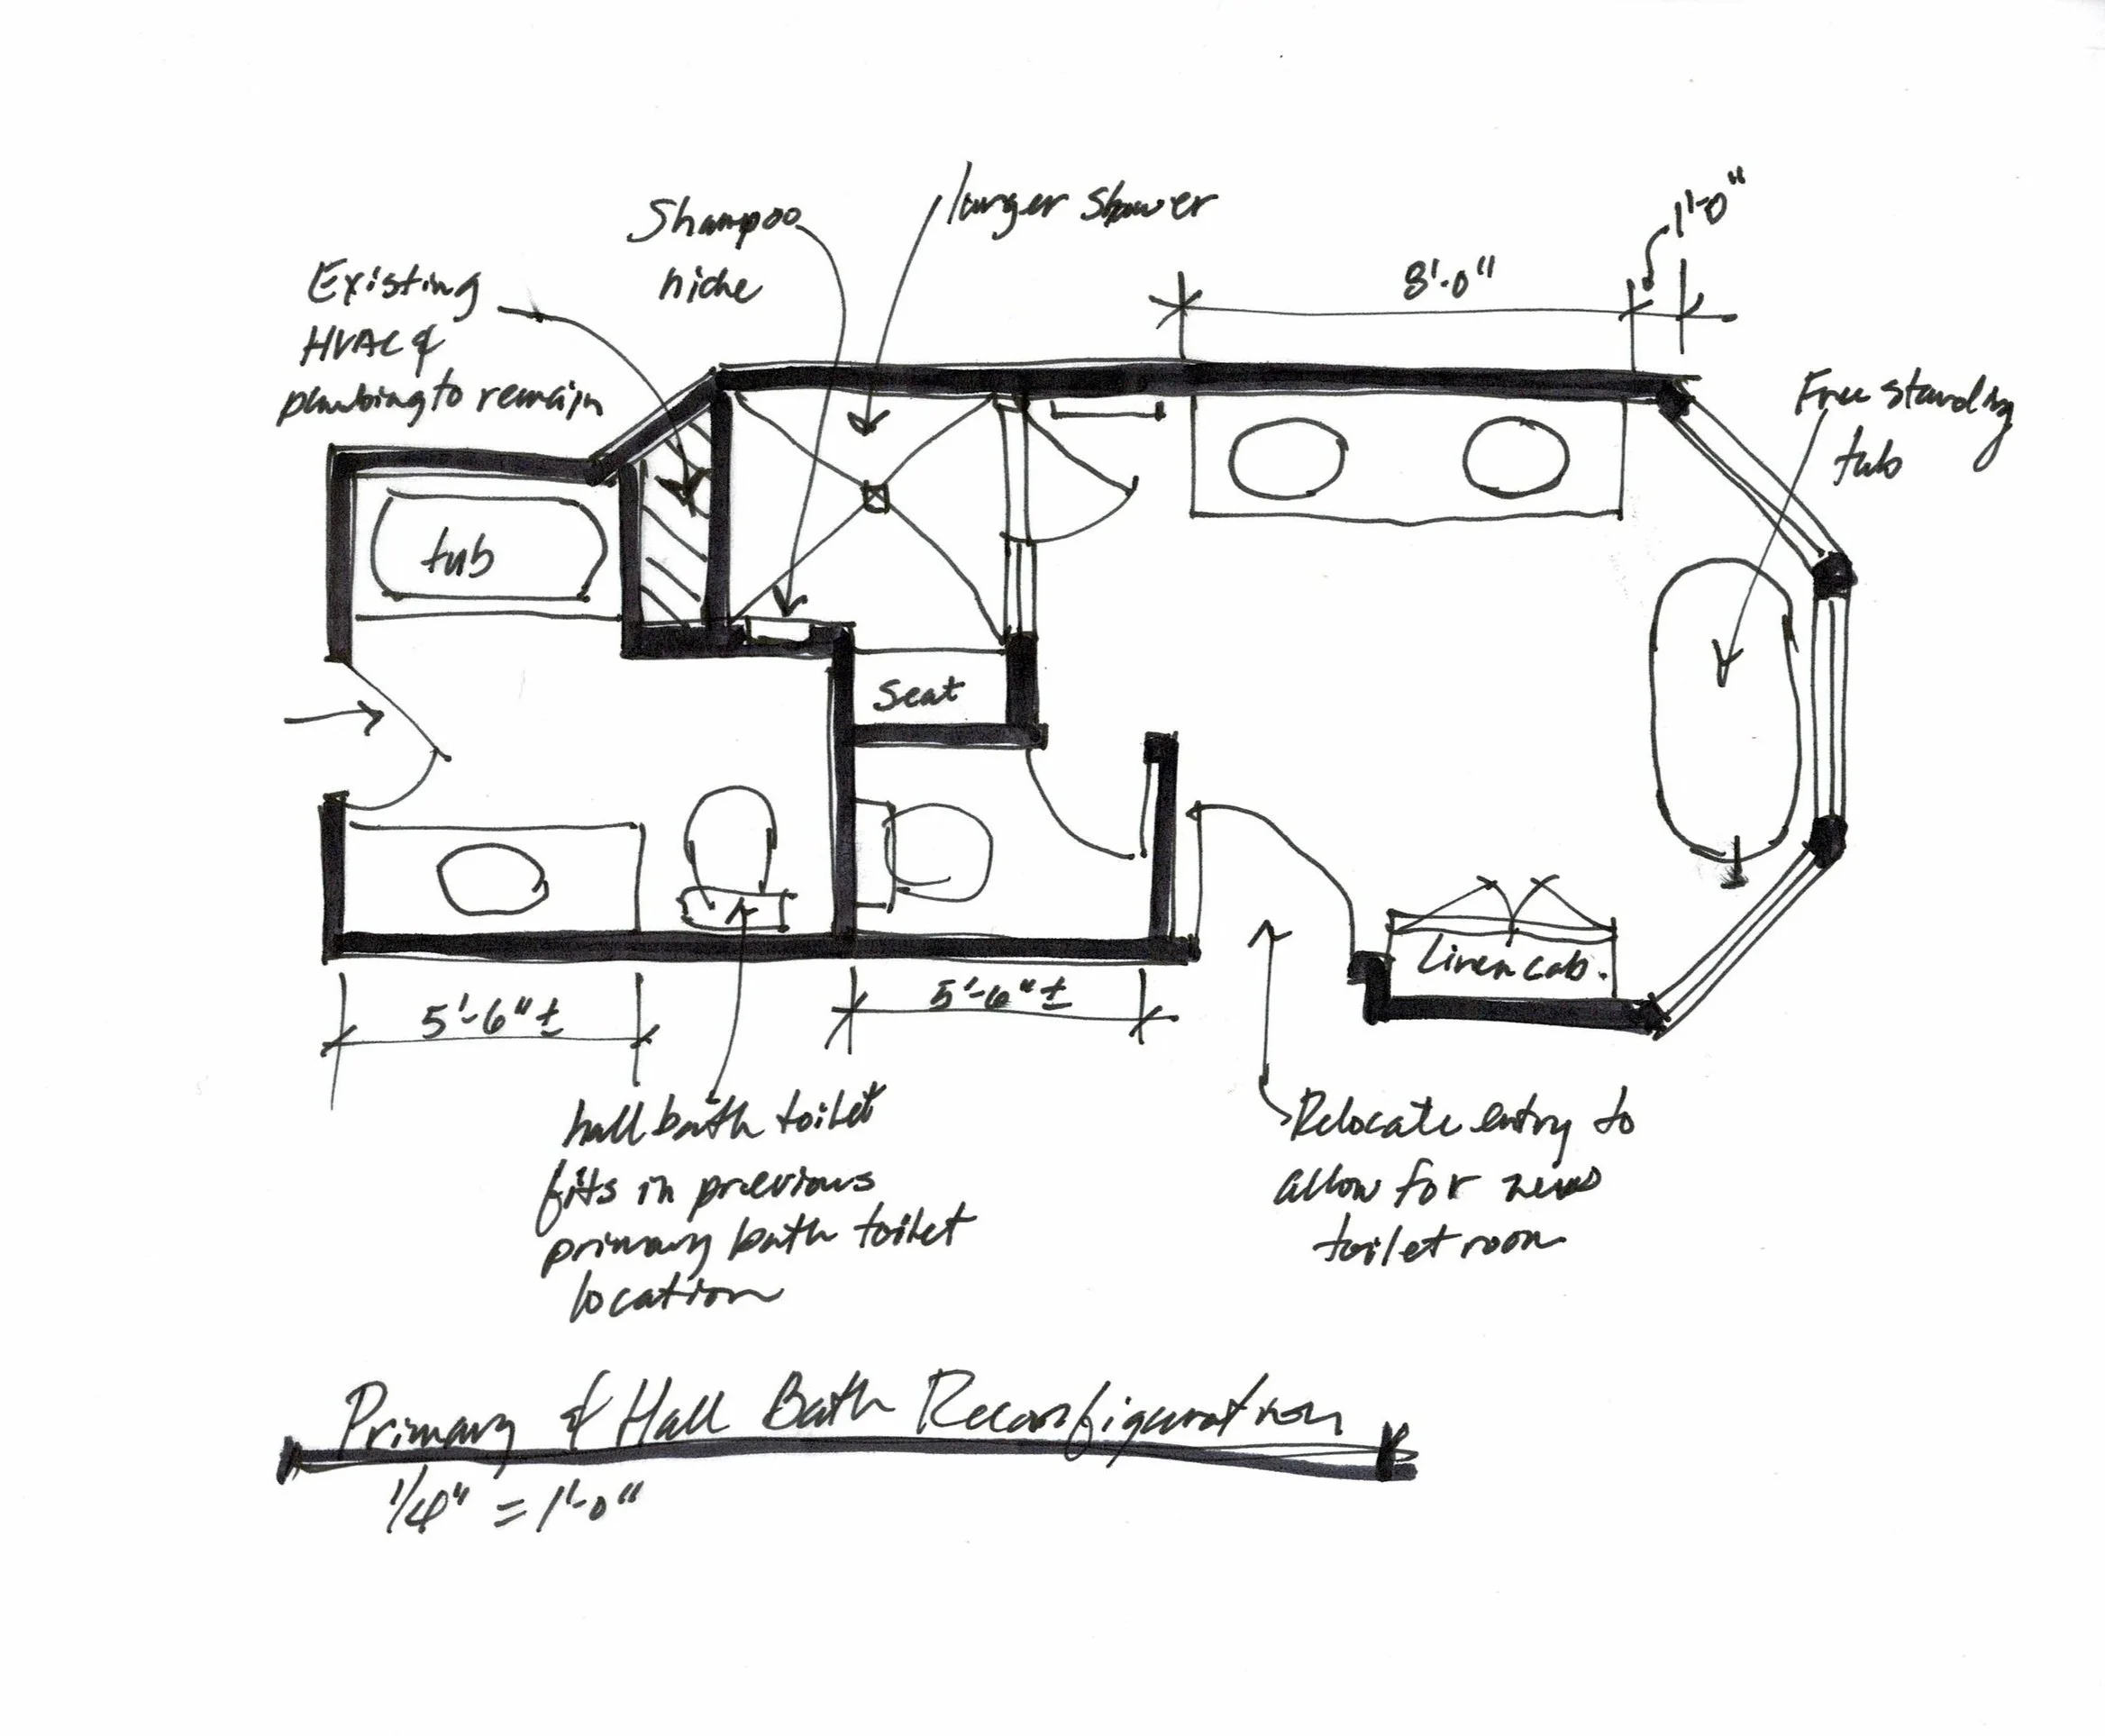 Shampoo
niche
larger shower
1'-0"
8'-0"
Existing
HVAC &
plumbing to remain
Free standing
tub
tub
Seat
Linen cab.
5'-6" ±
5'-6" ±
hall bath toilet
fits in previous
primary bath toilet
location
Relocate entry to
allow for new
toilet room
Primary & Hall Bath Reconfiguration
1/4" = 1'-0"